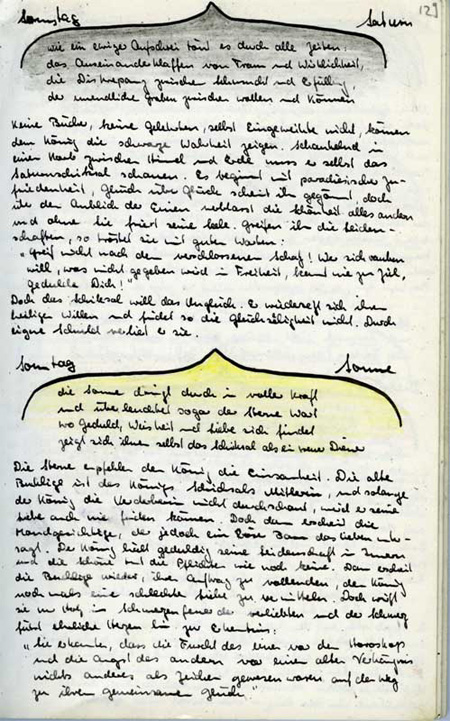 Samstag Saturn 129
wie ein ewiger Aufschrei tönt es durch alle Zeiten:
das Auseinanderklaffen von Traum und Wirklichkeit,
die Diskrepanz zwischen Sehnsucht und Erfüllung,
der unendliche Graben zwischen wollen und können
Keine Bücher, keine Gelehrten, selbst Eingeweihte nicht, können
dem König die schwarze Wahrheit zeigen. Schaukelnd in
einem Korb zwischen Himmel und Erde muss er selbst das
Saturnschicksal schauen. Es beginnt mit paradiesischer Zu-
friedenheit, Glück über Glück scheint ihm gegönnt, doch
über den Anblick der Einen verblasst die Schönheit alles andern
und ohne sie friert seine Seele. Greifen ihn die Leiden-
schaften, so tröstet sie mit guten Worten:
"Greif nicht nach dem verschlossenen Schatz! Wer sich rauben
will, was nicht gegeben wird in Freiheit, kommt nie zum Ziel,
gedulde Dich!"
Doch das Schicksal will das Unglück. Er widersetzt sich ihrem
heiligen Willen und findet so die Glückseligkeit nicht. Durch
eigne Schuld verliert er sie.
Sonntag Sonne
die Sonne dringt durch in voller Kraft
und überleuchtet sogar der Sterne Wort
wo Geduld, Weisheit und Liebe sich findet
zeigt sich ihnen selbst das Schicksal als ein treuer Diener
Die Sterne empfehlen dem König die Einsamkeit. Die alte
Bucklige ist des Königs Schicksals Mittlerin, und solange
der König die Verderberin nicht durchschaut, wird er seine
Liebe auch nie finden können. Doch dann erscheint die
Mondgesichtige, der jedoch ein böser Bann das Lieben unter-
sagt. Der König hüllt geduldig seine Leidenschaft im Innern
und die Schöne tut die Pflichten wie noch keine. Dann erscheint
die Bucklige wieder, ihren Auftrag zu vollenden, dem König
nochmals eine schlechte Liebe zu vermitteln. Doch wirft
sie ihr Herz in Schmerzensfeuer der verliebten und der Schmerz
führt ehrliche Herzen hin zur Erkenntnis:
"Sie erkannten, dass die Furcht des einen vor dem Horoskop
und die Angst des andern vor einem alten Verhängnis
nichts anderes als Zeichen gewesen waren auf dem Weg
zu ihrem gemeinsamen Glück."